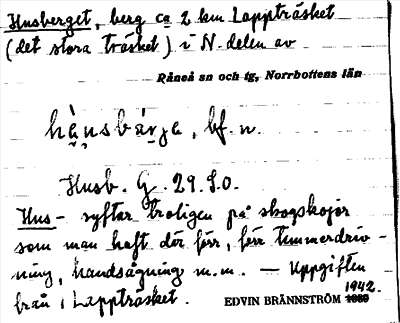 Husberget, berg ca 2 km Lappträsket
(det stora träsket) i N. delen av
Råneå sn och tg, Norrbottens län
bf. n.
Husb. G. 29. S.O.
Hus- syftar troligen på skogskojor
som man haft där förr, förr timmerdriv-
ning, handsågning m.m. — Uppgiften
från i Lappträsket.
EDVIN BRÄNNSTRÖM 1942.